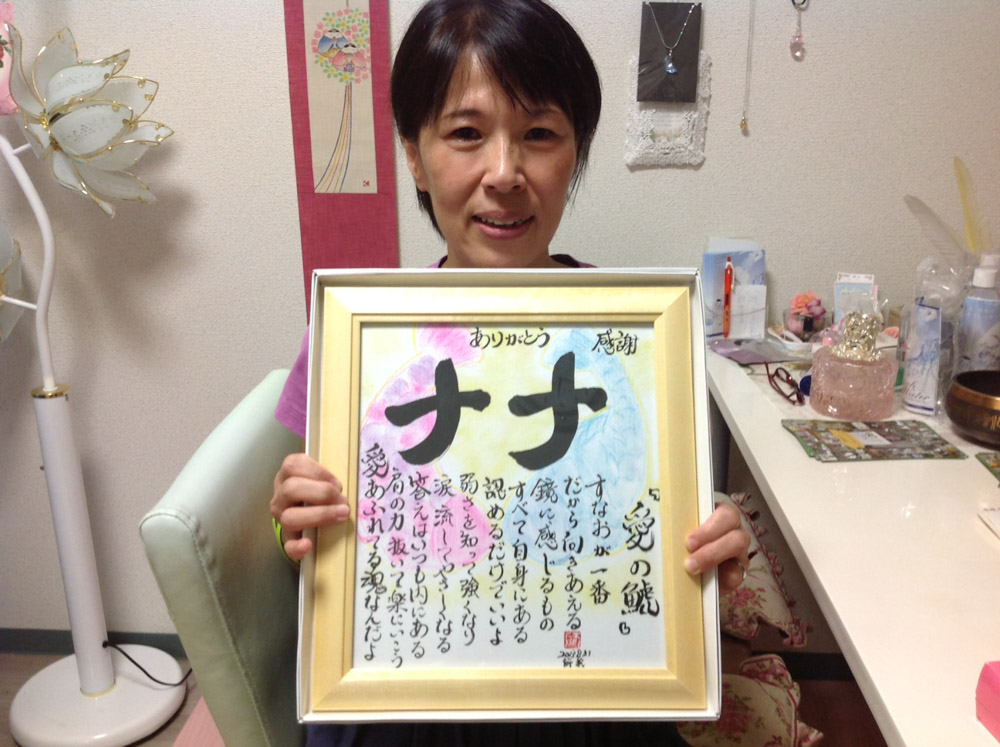 ありがとう
感謝
ナナ
『愛の鯱』
すなおが一番
だから向きあえる
鏡に感じるもの
すべて自身にある
認めるだけでいいよ
弱さを知って強くなり
涙流してやさしくなる
答えはいつも内にある
肩の力抜いて楽にいこう
愛あふれてる魂なんだよ